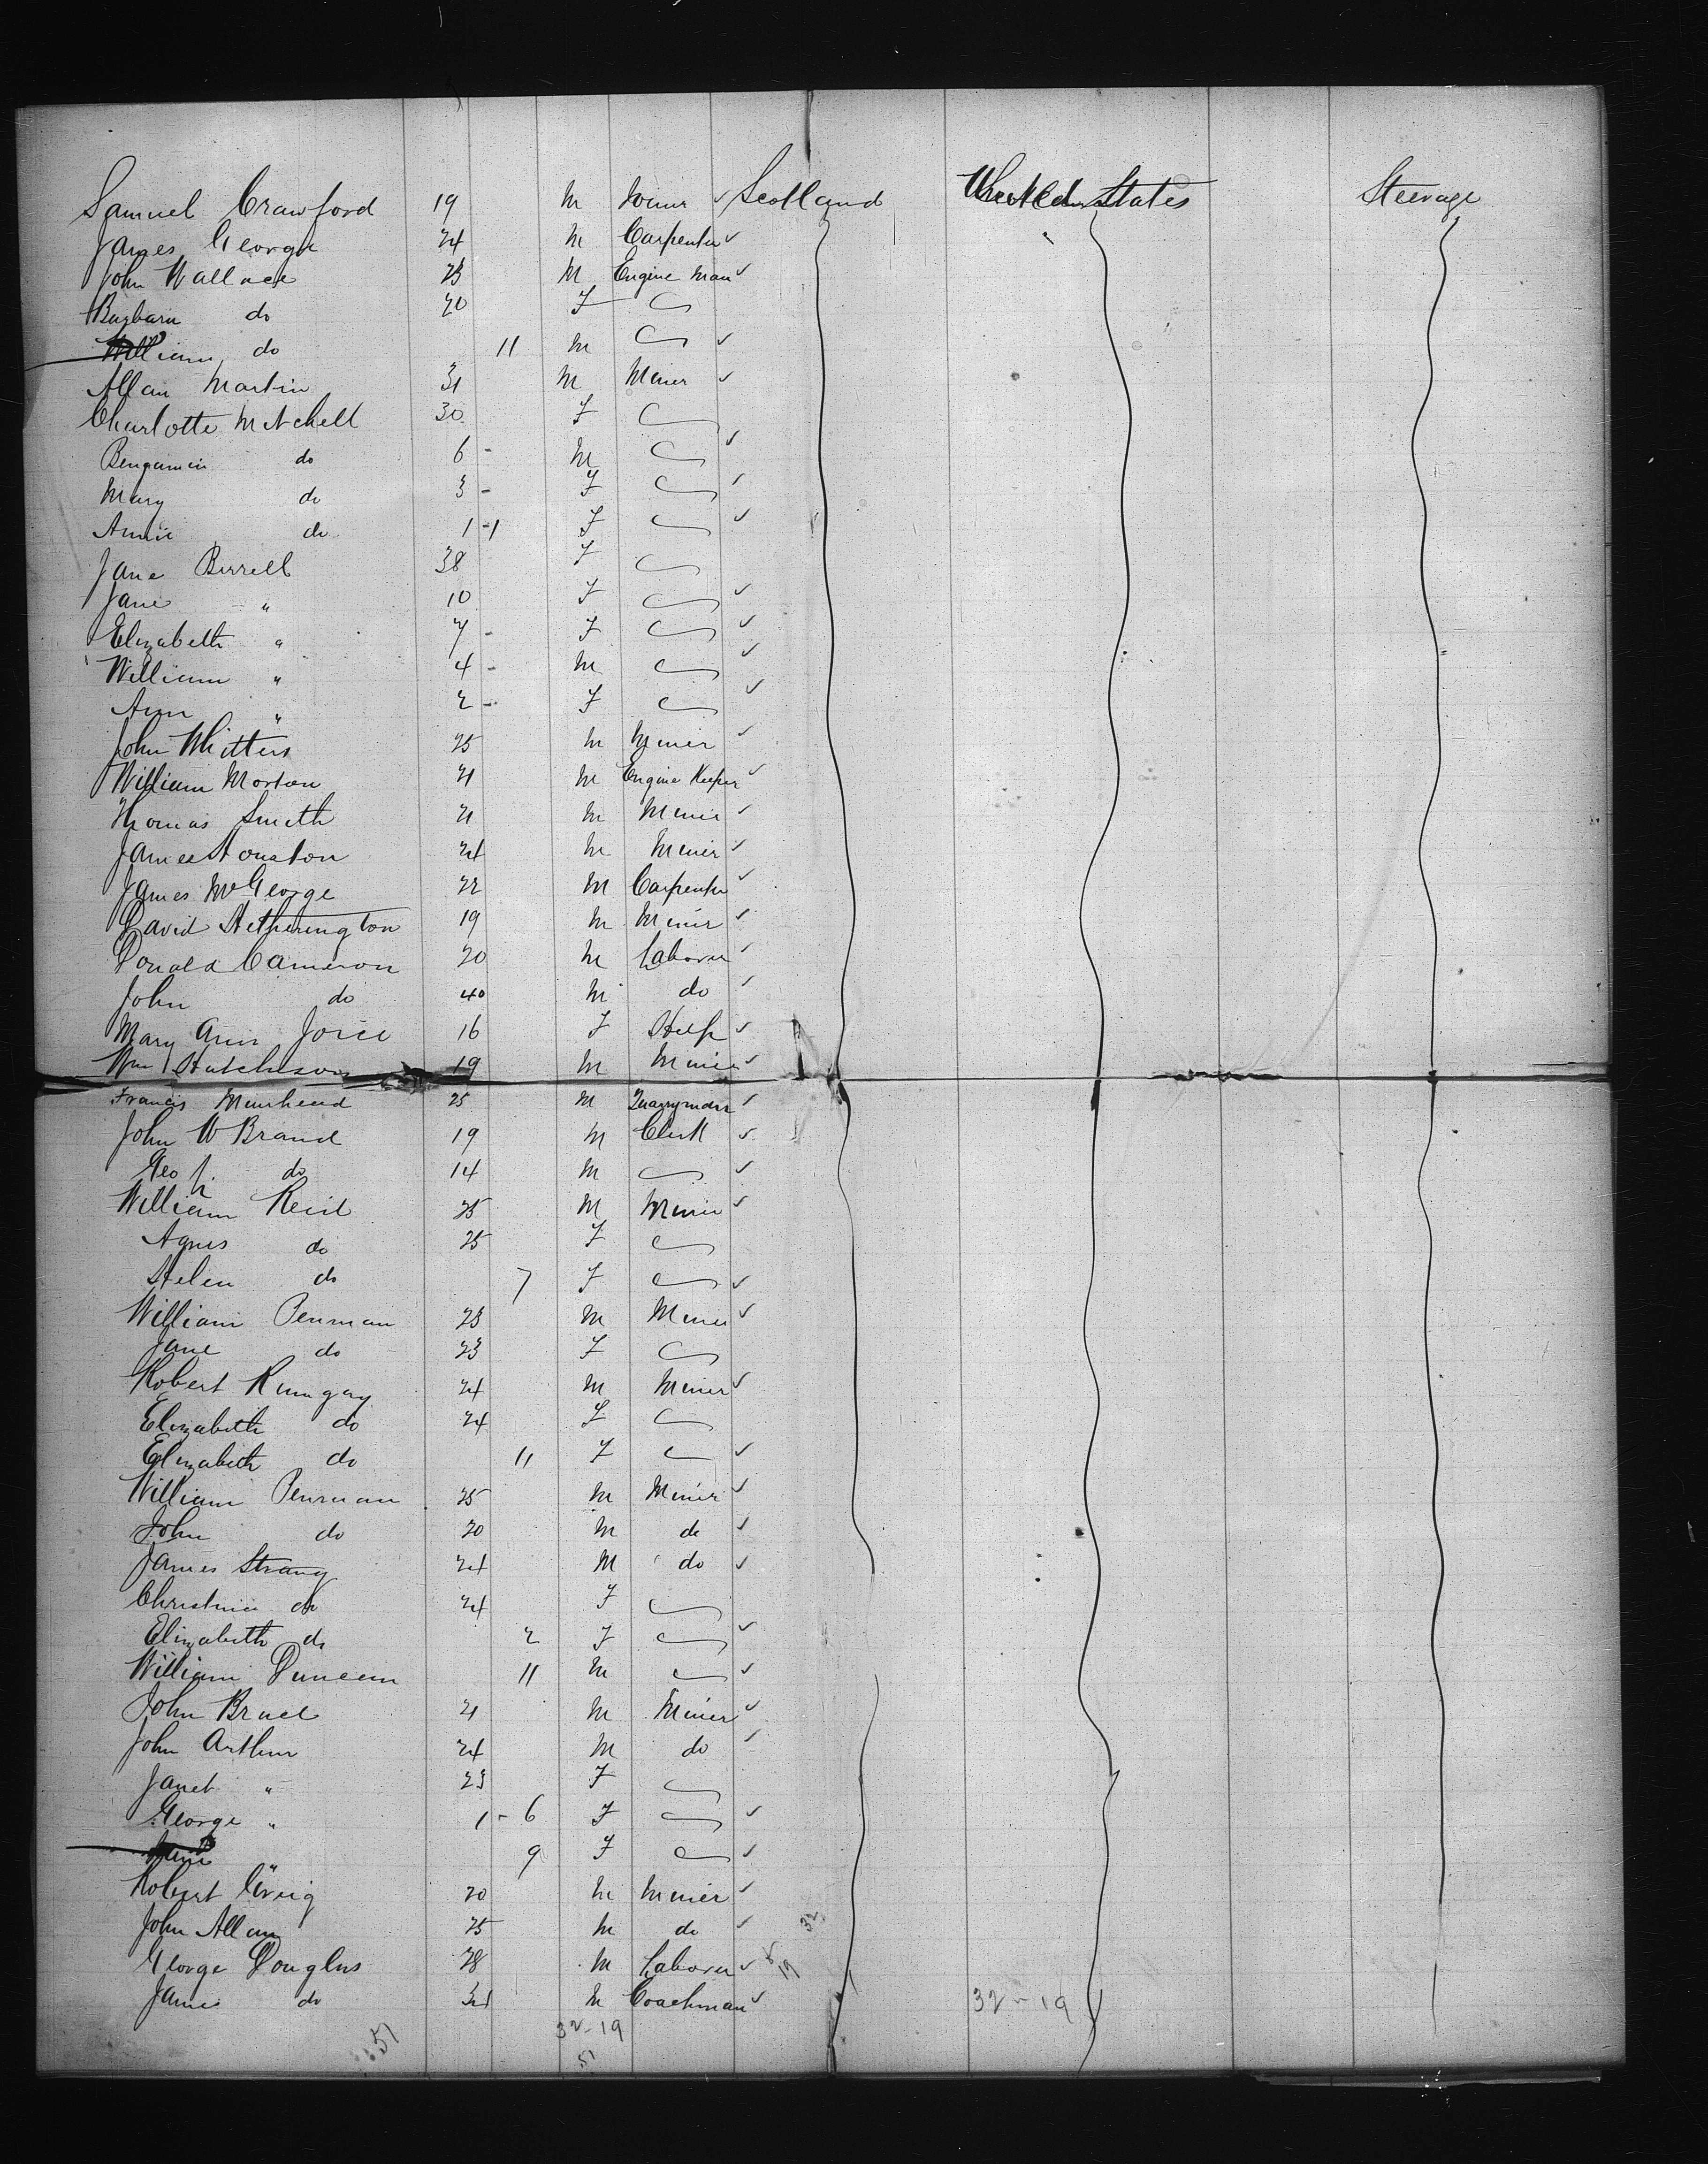 Samuel Crawford 19 M Joiner ✓ Scotland United States Steerage
James George 24 M Carpenter ✓
John Wallace 23 M Engine Man ✓
Barbara do 20 F
William do 11 M ✓
Allan Martin 31 M Miner ✓
Charlotte Mitchell 30 F
Bengamin do 6 - M ✓
Mary do 3 - F ✓
Annie do 1 - 1 F ✓
Jane Birrell 38 F
Jane " 10 F ✓
Elizabeth " 7 - F ✓
William " 4 - M ✓
Ann " 2 - F ✓
John Whitters 25 M Miner ✓
William Morton 21 M Engine Keeper ✓
Thomas Smith 21 M Miner ✓
James Houston 24 M Miner ✓
James McGeorge 22 M Carpenter ✓
David Hetherington 19 M Miner ✓
Donald Cameron 20 M Laborer ✓
John do 40 M do ✓
Mary Ann Joice 16 F Help ✓
Wm Hutchison 19 M Miner ✓
Francis Muirhead 25 M Quarryman ✓
John W Brand 19 M Clerk ✓
Geo do 14 M ✓
William Reid 25 M Miner ✓
Agnes do 25 F
Helen do 7 F ✓
William Penman 23 M Miner ✓
Jane do 23 F
Robert Rumgay 24 M Miner ✓
Elizabeth do 24 F
Elizabeth do 11 F ✓
William Penman 25 M Miner ✓
John do 20 M do ✓
James Strang 24 M do ✓
Christina do 24 F
Elizabeth do 2 F ✓
William Duncan 11 M ✓
John Bruce 21 M Miner ✓
John Arthur 24 M do ✓
Janet " 23 F
George " 1 - 6 F ✓
Jane " 9 F ✓
Robert Greig 20 M Miner ✓
John Allan 25 M do ✓ 32
George Douglas 28 M Laborer ✓ 19
James do M Coachman ✓ 32-19
51 32-19
51